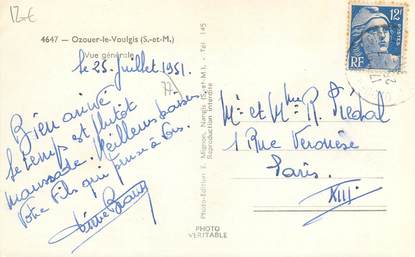 12€
4647 - Ozouer-le-Voulgis (S.-et-M.)
Vue générale
le 25 juillet 1951.
77
Bien arrivé
le temps est plutôt
maussade. Meilleurs baisers
Votre fils qui pense à vous.
Photo-Édition E. Mignon, Nangis (S.-et-M.) - Tél 145
Reproduction interdite
PHOTO
VÉRITABLE
12F
POSTES
RF
Mr et Mme R.
1 Rue Véronèse
Paris.
XIII